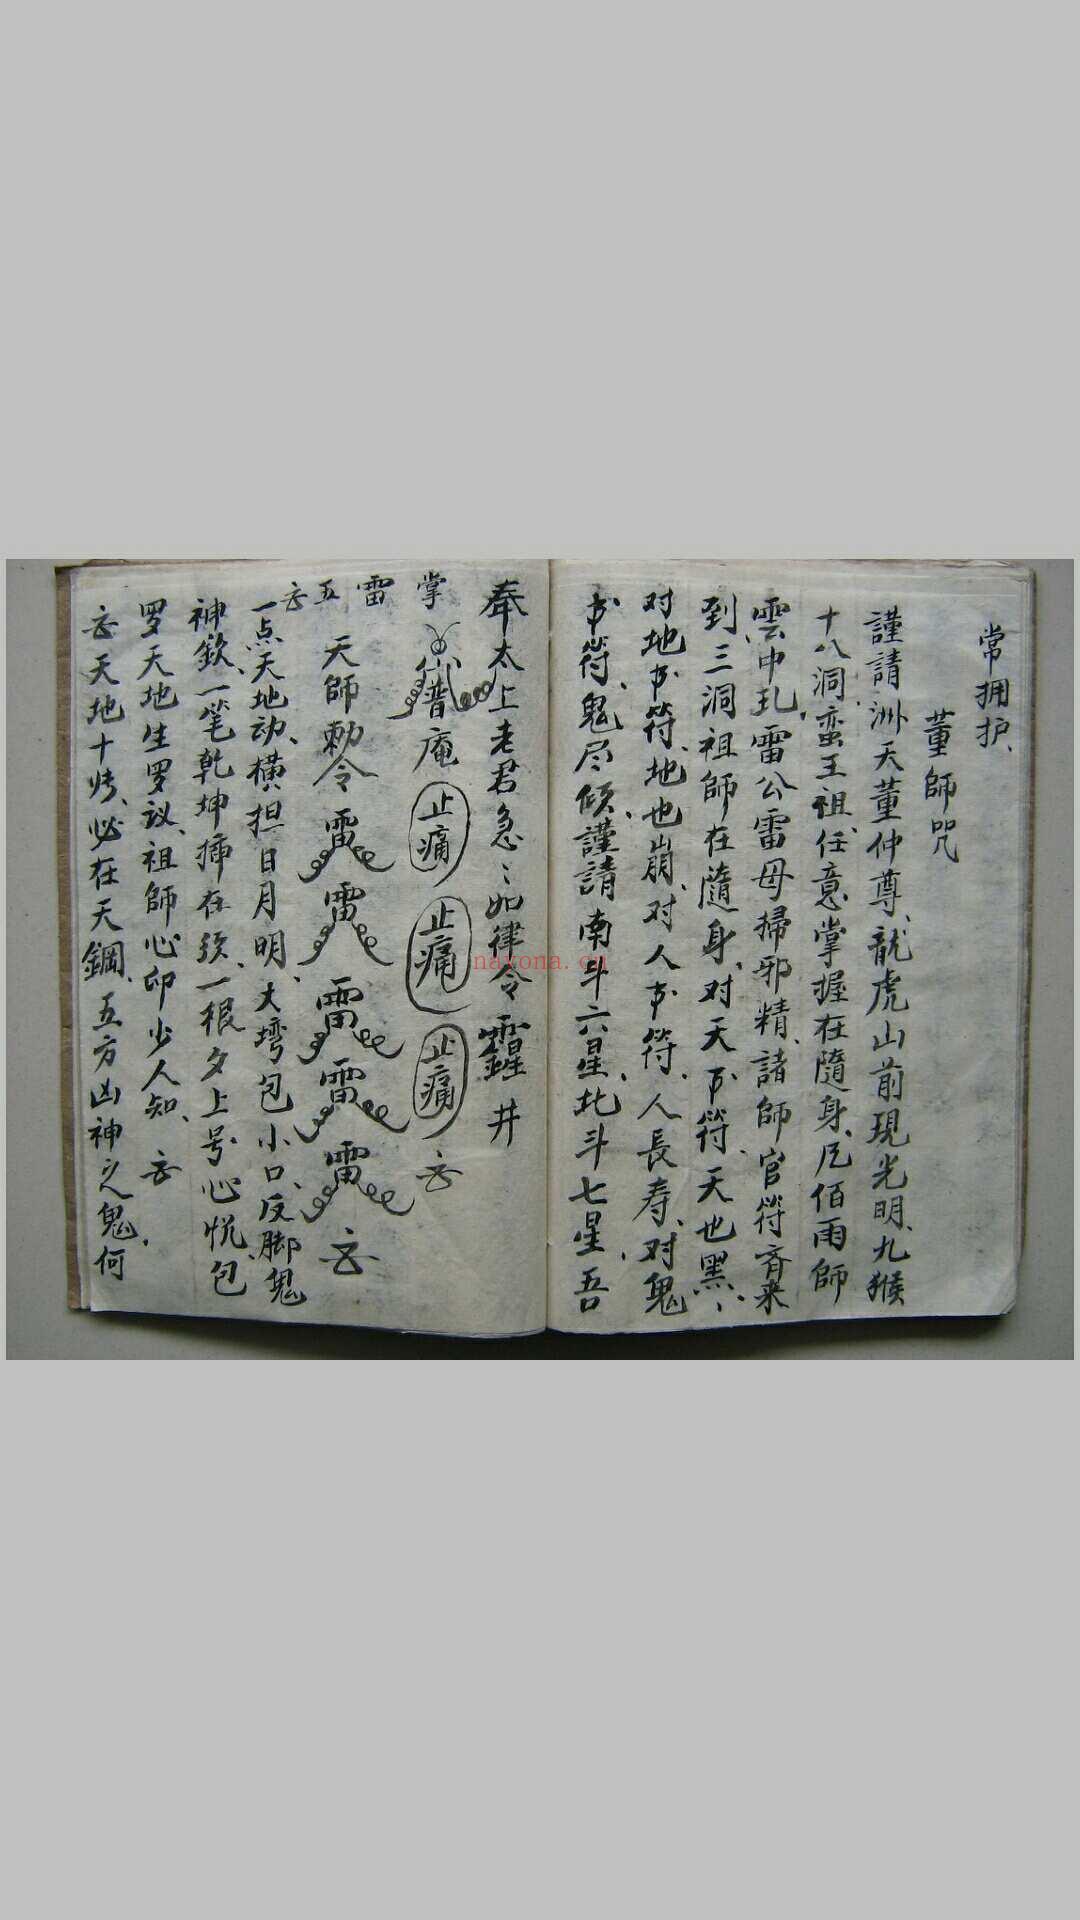 常拥护、
董師咒
謹請洲天董仲尊、龍虎山前現光明、九猴
十八洞、蛮王祖、任意掌握在隨身、風佰雨師
雲中扎、雷公雷母掃邪精、諸師官符齐来
到、三洞祖師在隨身、对天书符、天也黑、
对地书符、地也崩、对人书符、人長寿、对鬼
书符、鬼尽倾、謹請南斗六星、北斗七星、吾
奉太上老君急〻如律令 井
普庵 止痛 止痛 止痛
掌雷五
天師勅令 雷 雷 雷 雷 雷
一点天地动、横担日月明、大塆包小口、反脚鬼
神欽、一笔乾坤 在 、一根夕上号心悦、包
罗天地生罗议、祖師心印少人知、
天地十 、必在天鋼、五方凶神之鬼、何
nayona.cn